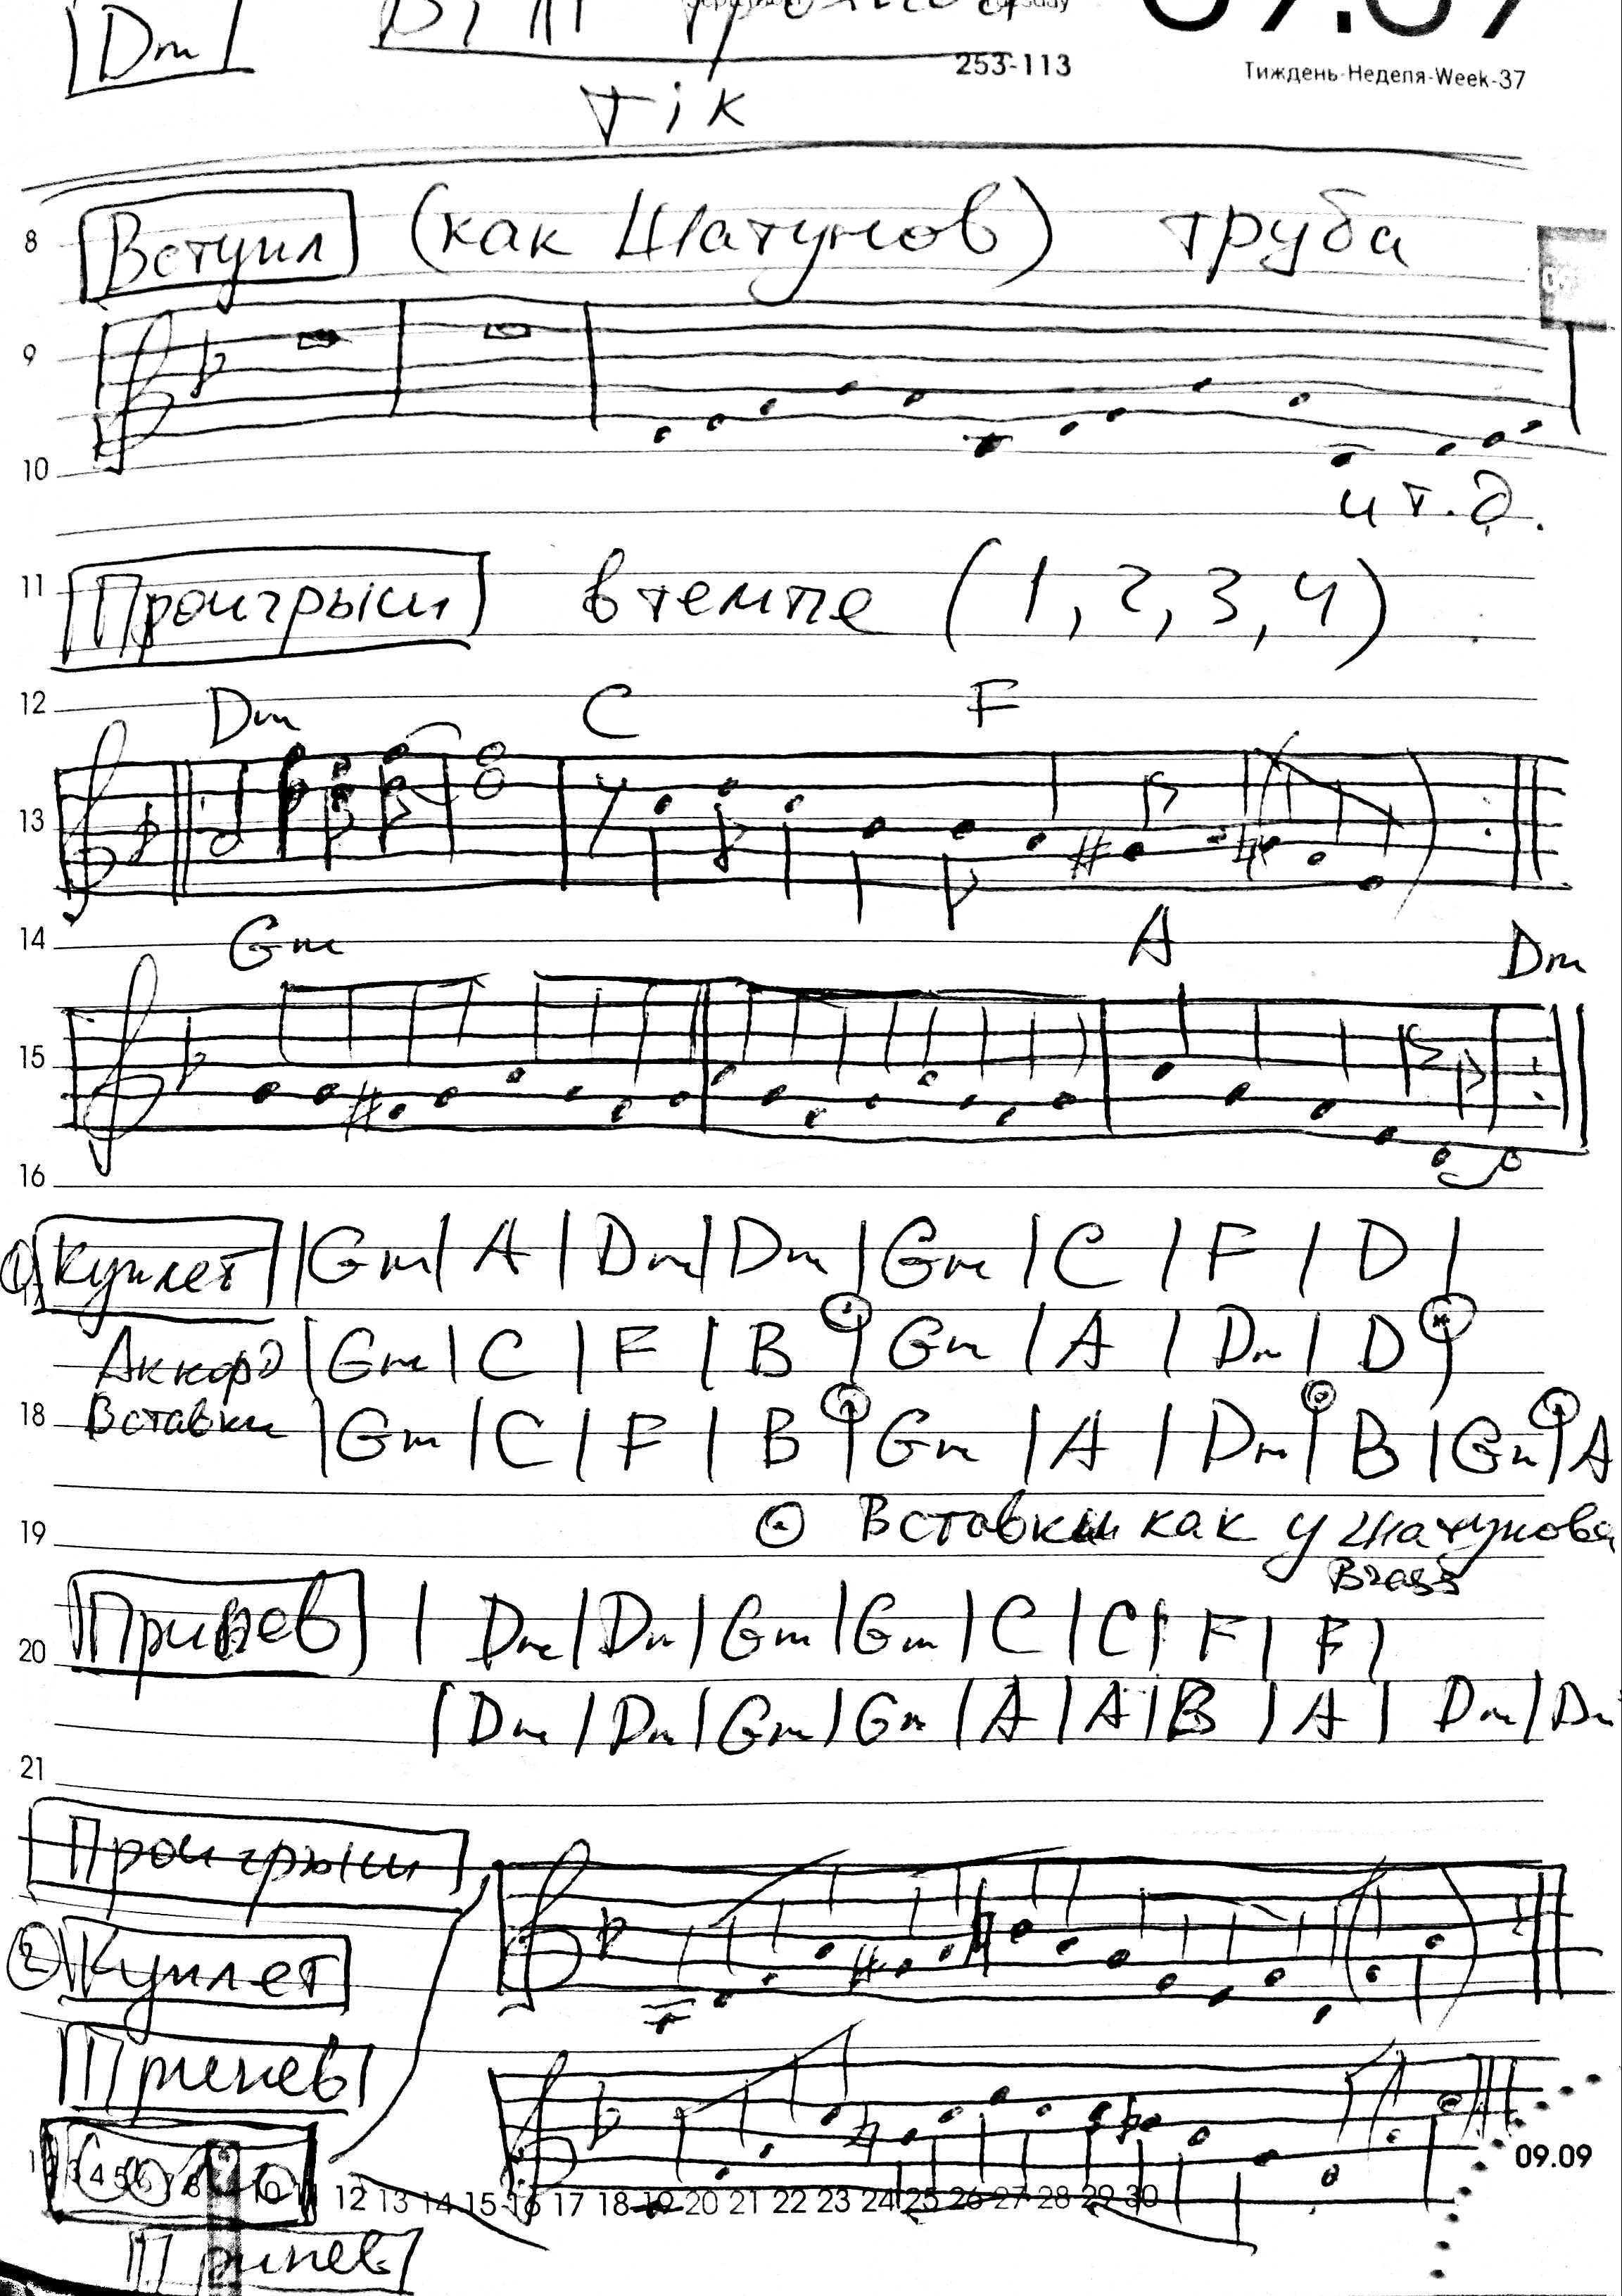 Dm
253-113
Тиждень-Неделя-Week-37
Тік
8 Вступл (как Шатунов) труба
9
10
и т.д.
11 Проигрыш в темпе (1, 2, 3, 4)
12 Dm C F
13
14 Gm A Dm
15
16
1) Куплет || Gm | A | Dm | Dm | Gm | C | F | D |
Аккорд | Gm | C | F | B | Gm | A | Dm | D |
18 Вставки | Gm | C | F | B | Gm | A | Dm | B | Gm | A
19 ⊙ Вставки как у Шатунова
Brass
20 Припев | Dm | Dm | Gm | Gm | C | C | F | F |
| Dm | Dm | Gm | Gm | A | A | B | A | Dm | Dm
21
Проигрыш
2 Куплет
Припев
09.09
12 13 14 15 16 17 18 19 20 21 22 23 24 25 26 27 28 29 30
Припев